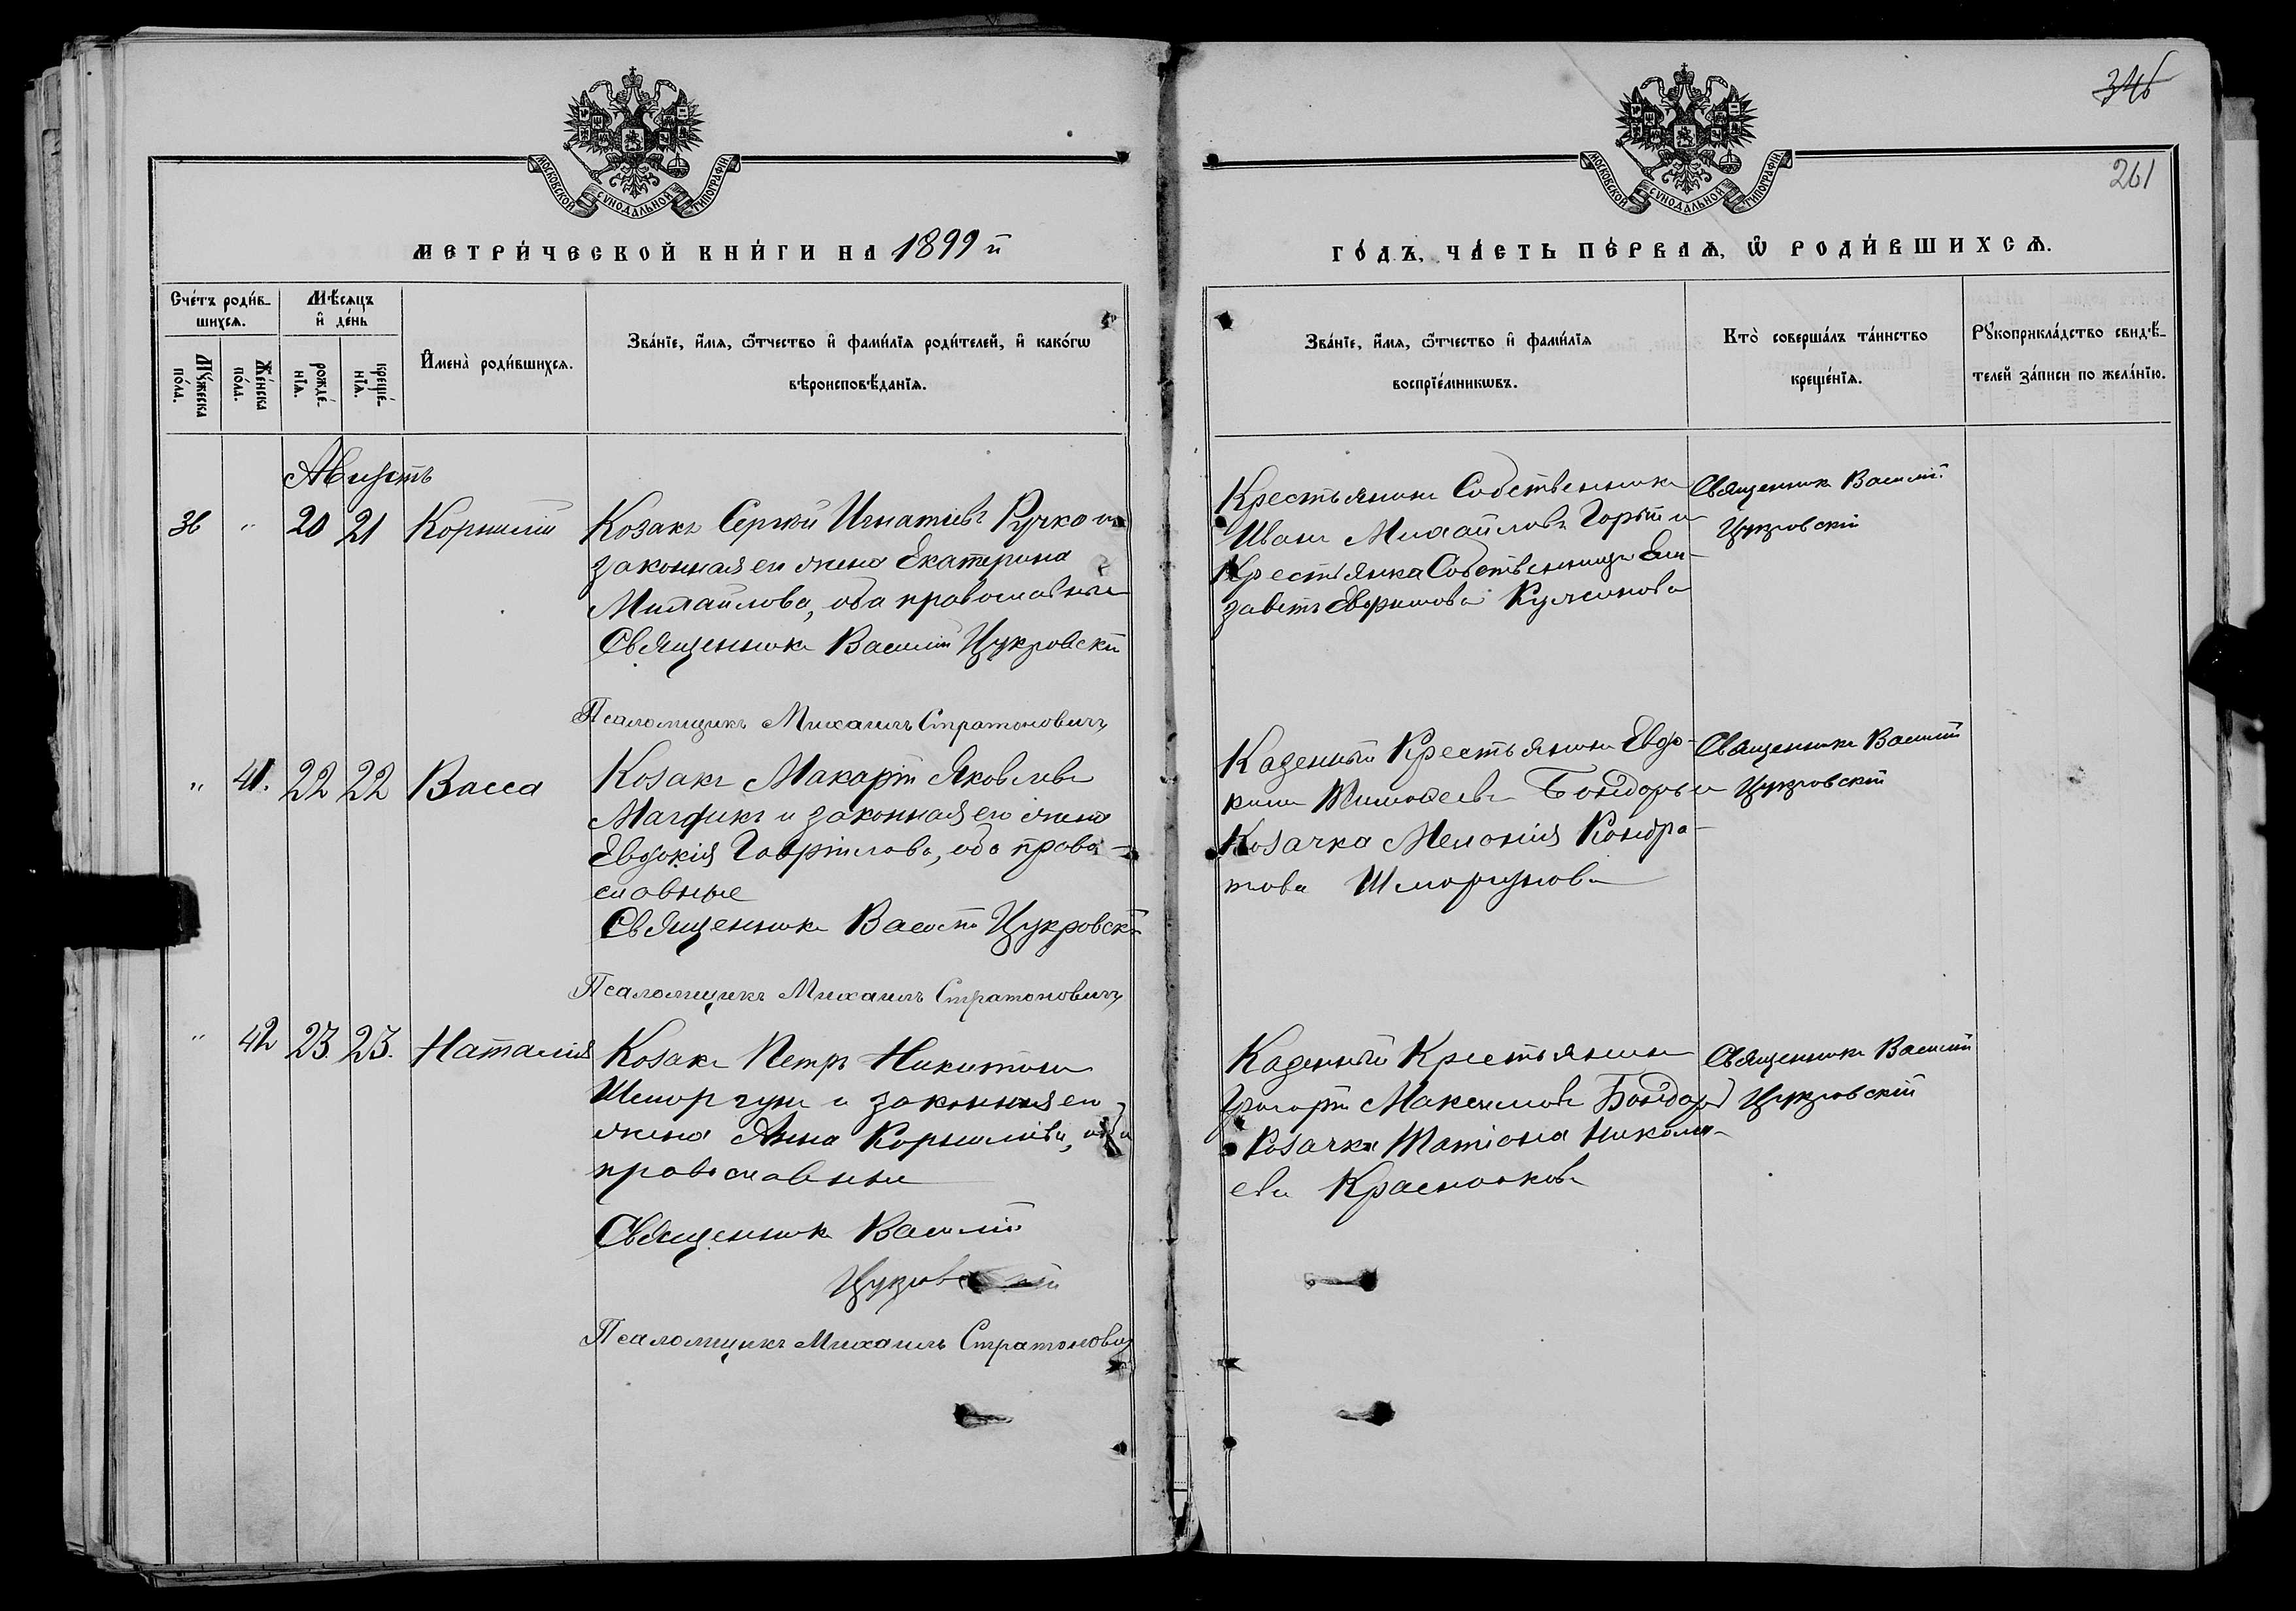 346
261
МОСКОВСКОЙ СѴНОДАЛЬНОЙ ТИПОГРАФІИ
МОСКОВСКОЙ СѴНОДАЛЬНОЙ ТИПОГРАФІИ
МЕТРИ́ЧЕСКОЙ КНИ́ГИ НА 1899 й
ГО́ДЪ, ЧА́СТЬ ПЕ́РВАѦ, Ѡ҆ РОДИ́ВШИХСѦ.
Сче́тъ роди́в-
шихсѧ.
Мѣ́сѧцъ
и҆ де́нь
Му́жеска
по́ла.
Же́нска
по́ла.
рожде́-
нїѧ.
креще́-
нїѧ.
И҆мена̀ роди́вшихсѧ.
Зва́нїе, и҆́мѧ, ѻ҆́тчество и҆ фами́лїѧ роди́телей, и҆ како́гѡ
вѣроисповѣ́данїѧ.
Зва́нїе, и҆́мѧ, ѻ҆́тчество и҆ фами́лїѧ
воспрїе́мникѡвъ.
Кто̀ соверша́лъ та́инство
креще́нїѧ.
Рꙋкоприкла́дство свидѣ́-
телей за́писи по жела́нїю.
Августъ
36 " 20 21 Корнилій
Козакъ Сергѣй Игнатіевъ Ручко и
законная его жена Екатерина
Михайлова, оба православные
Священникъ Василій Цукровскій
Псаломщикъ Михаилъ Стратоновичъ
Крестьянинъ Собственникъ
Иванъ Михайловъ и
Крестьянка Собственница Ели-
заветъ
Священникъ Василій
Цукровскій
" 41. 22 22 Васса
Козакъ Макарій Яковлевъ
и законная его жена
Евдокія Гаврiилова, оба право-
славные
Священникъ Василій Цукровскій
Псаломщикъ Михаилъ Стратоновичъ
Казенный Крестьянинъ Евдо-
кимъ Тимофеевъ Бондарь и
Козачка Меланія Кондра-
това Шморгунова
Священникъ Василій
Цукровскій
" 42 23. 23. Наталія
Козакъ Петръ Никитинъ
Шморгунъ и законная его
жена Анна Корниліева, оба
православные
Священникъ Василій
Цукровскій
Псаломщикъ Михаилъ Стратоновичъ
Казенный Крестьянинъ
Григорій Максимовъ Бондарь
Козачка Татіана Никола-
ева
Священникъ Василій
Цукровскій